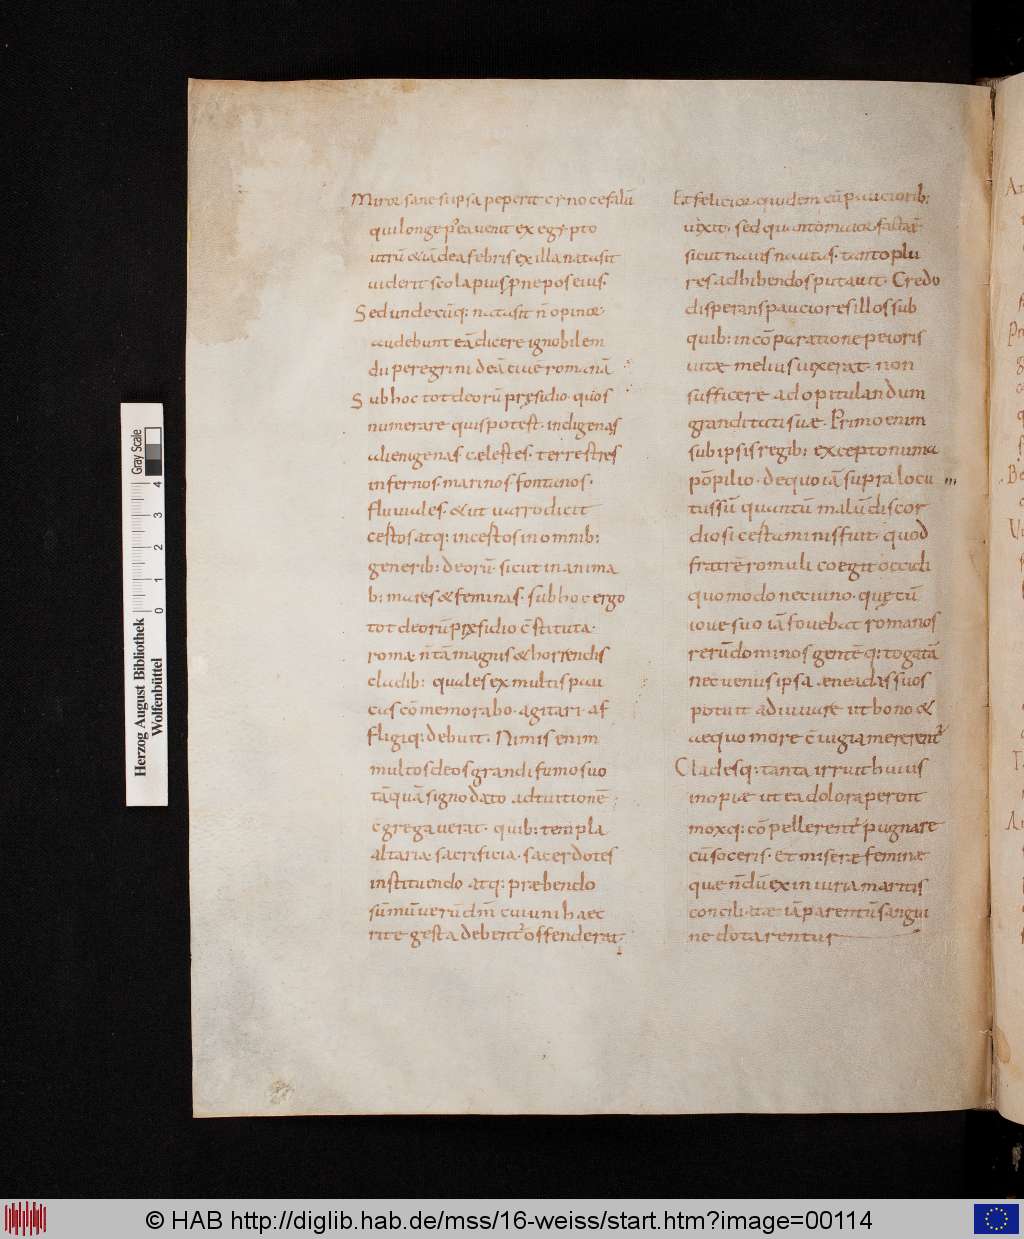 Miror sane si ipsa peperit cynocefalū
qui longe p̄ea venit ex egypto
utrū & iā dea febris ex illa nata sit
viderit scolapius p̄nepos eius.
Sed undecūq: nata sit n̄ opinor
audebunt eā dicere ignobilem
dii peregrini deā cive romanā
Sub hoc tot deorū pręsidio. quos
numerare quis potest. indigenas
alienigenas cælestes. terrestres
infernos. marinos. fontanos.
fluviales. & ut varro dicit
certos atq: incertos in omnib:
generib: deorū. sicut in anima
b: mares & feminas. sub hoc ergo
tot deorū pręsidio c̄stituta.
roma n̄ tā magnis & horrendis
cladib: quales ex multis pau
cas cōmemorabo. agitari. af
fligiq: debuit. Nimis enim
multos deos grandi fumo suo
tāquā signo dato ad tuitionē
c̄gregaverat. quib: templa
altaria. sacrificia. sacerdotes
instituendo atq: præbendo
sūmū verū dm̄ cui uni haec
rite gesta debent' offenderat.
Et felicior quidem cū pauciorib:
vixit. sed quanto maior facta ē
sicut navis nautas. tanto plu
res adhibendos putavit. Credo
disperans pauciores illos sub
quib: in cōparatione peioris
vitæ melius vixerat. non
sufficere ad opitulandum
granditati suæ. Primo enim
sub ipsis regib: excepto numa
pōpilio. de quo iā supra locu
tus sū quantū malū discor
diosi certaminis fuit. quod
fratrē romuli coegit occidi
quomodo nec iuno. quę cū
iove suo iā fovebat romanos
rerū dominos gentēq: togatā
nec venus ipsa æneadas suos
potuit adiuvare ut bono &
aequo more c̄iugia mererent'
Cladesq: tanta irruit huius
inopiæ ut ea dolo raperent
moxq: cōpellerent' pugnare
cū soceris. Et miseræ feminæ
quæ n̄dū ex iniuria maritis
conciliatæ iā parentū sangui
ne dotarentur
Herzog August Bibliothek
Wolfenbüttel
0 1 2 3 4
Gray Scale
© HAB http://diglib.hab.de/mss/16-weiss/start.htm?image=00114